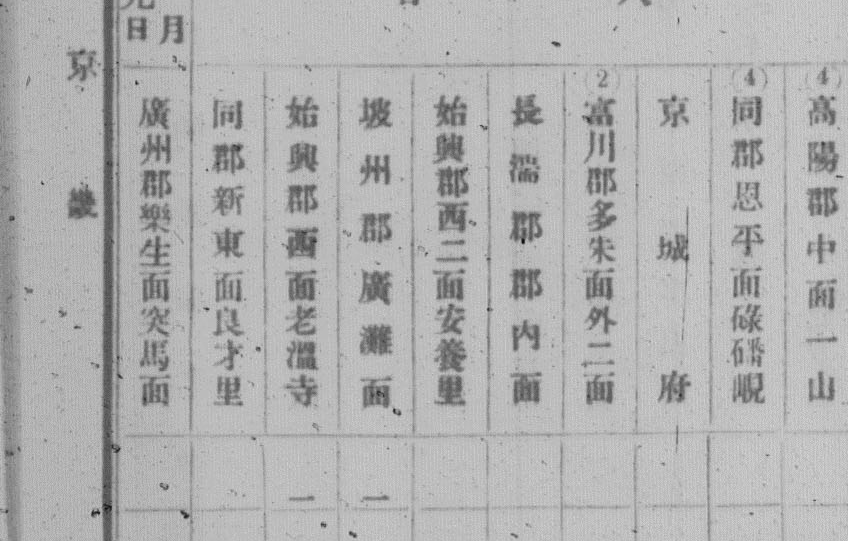 ④高陽郡中面一山
④同郡恩平面碌磻峴
京城府
②富川郡多朱面外二面
長湍郡郡內面
始興郡西二面安養里
坡州郡廣灘面
一
始興郡西面老溫寺
一
同郡新東面良才里
月
日
廣州郡樂生面突馬面
京畿